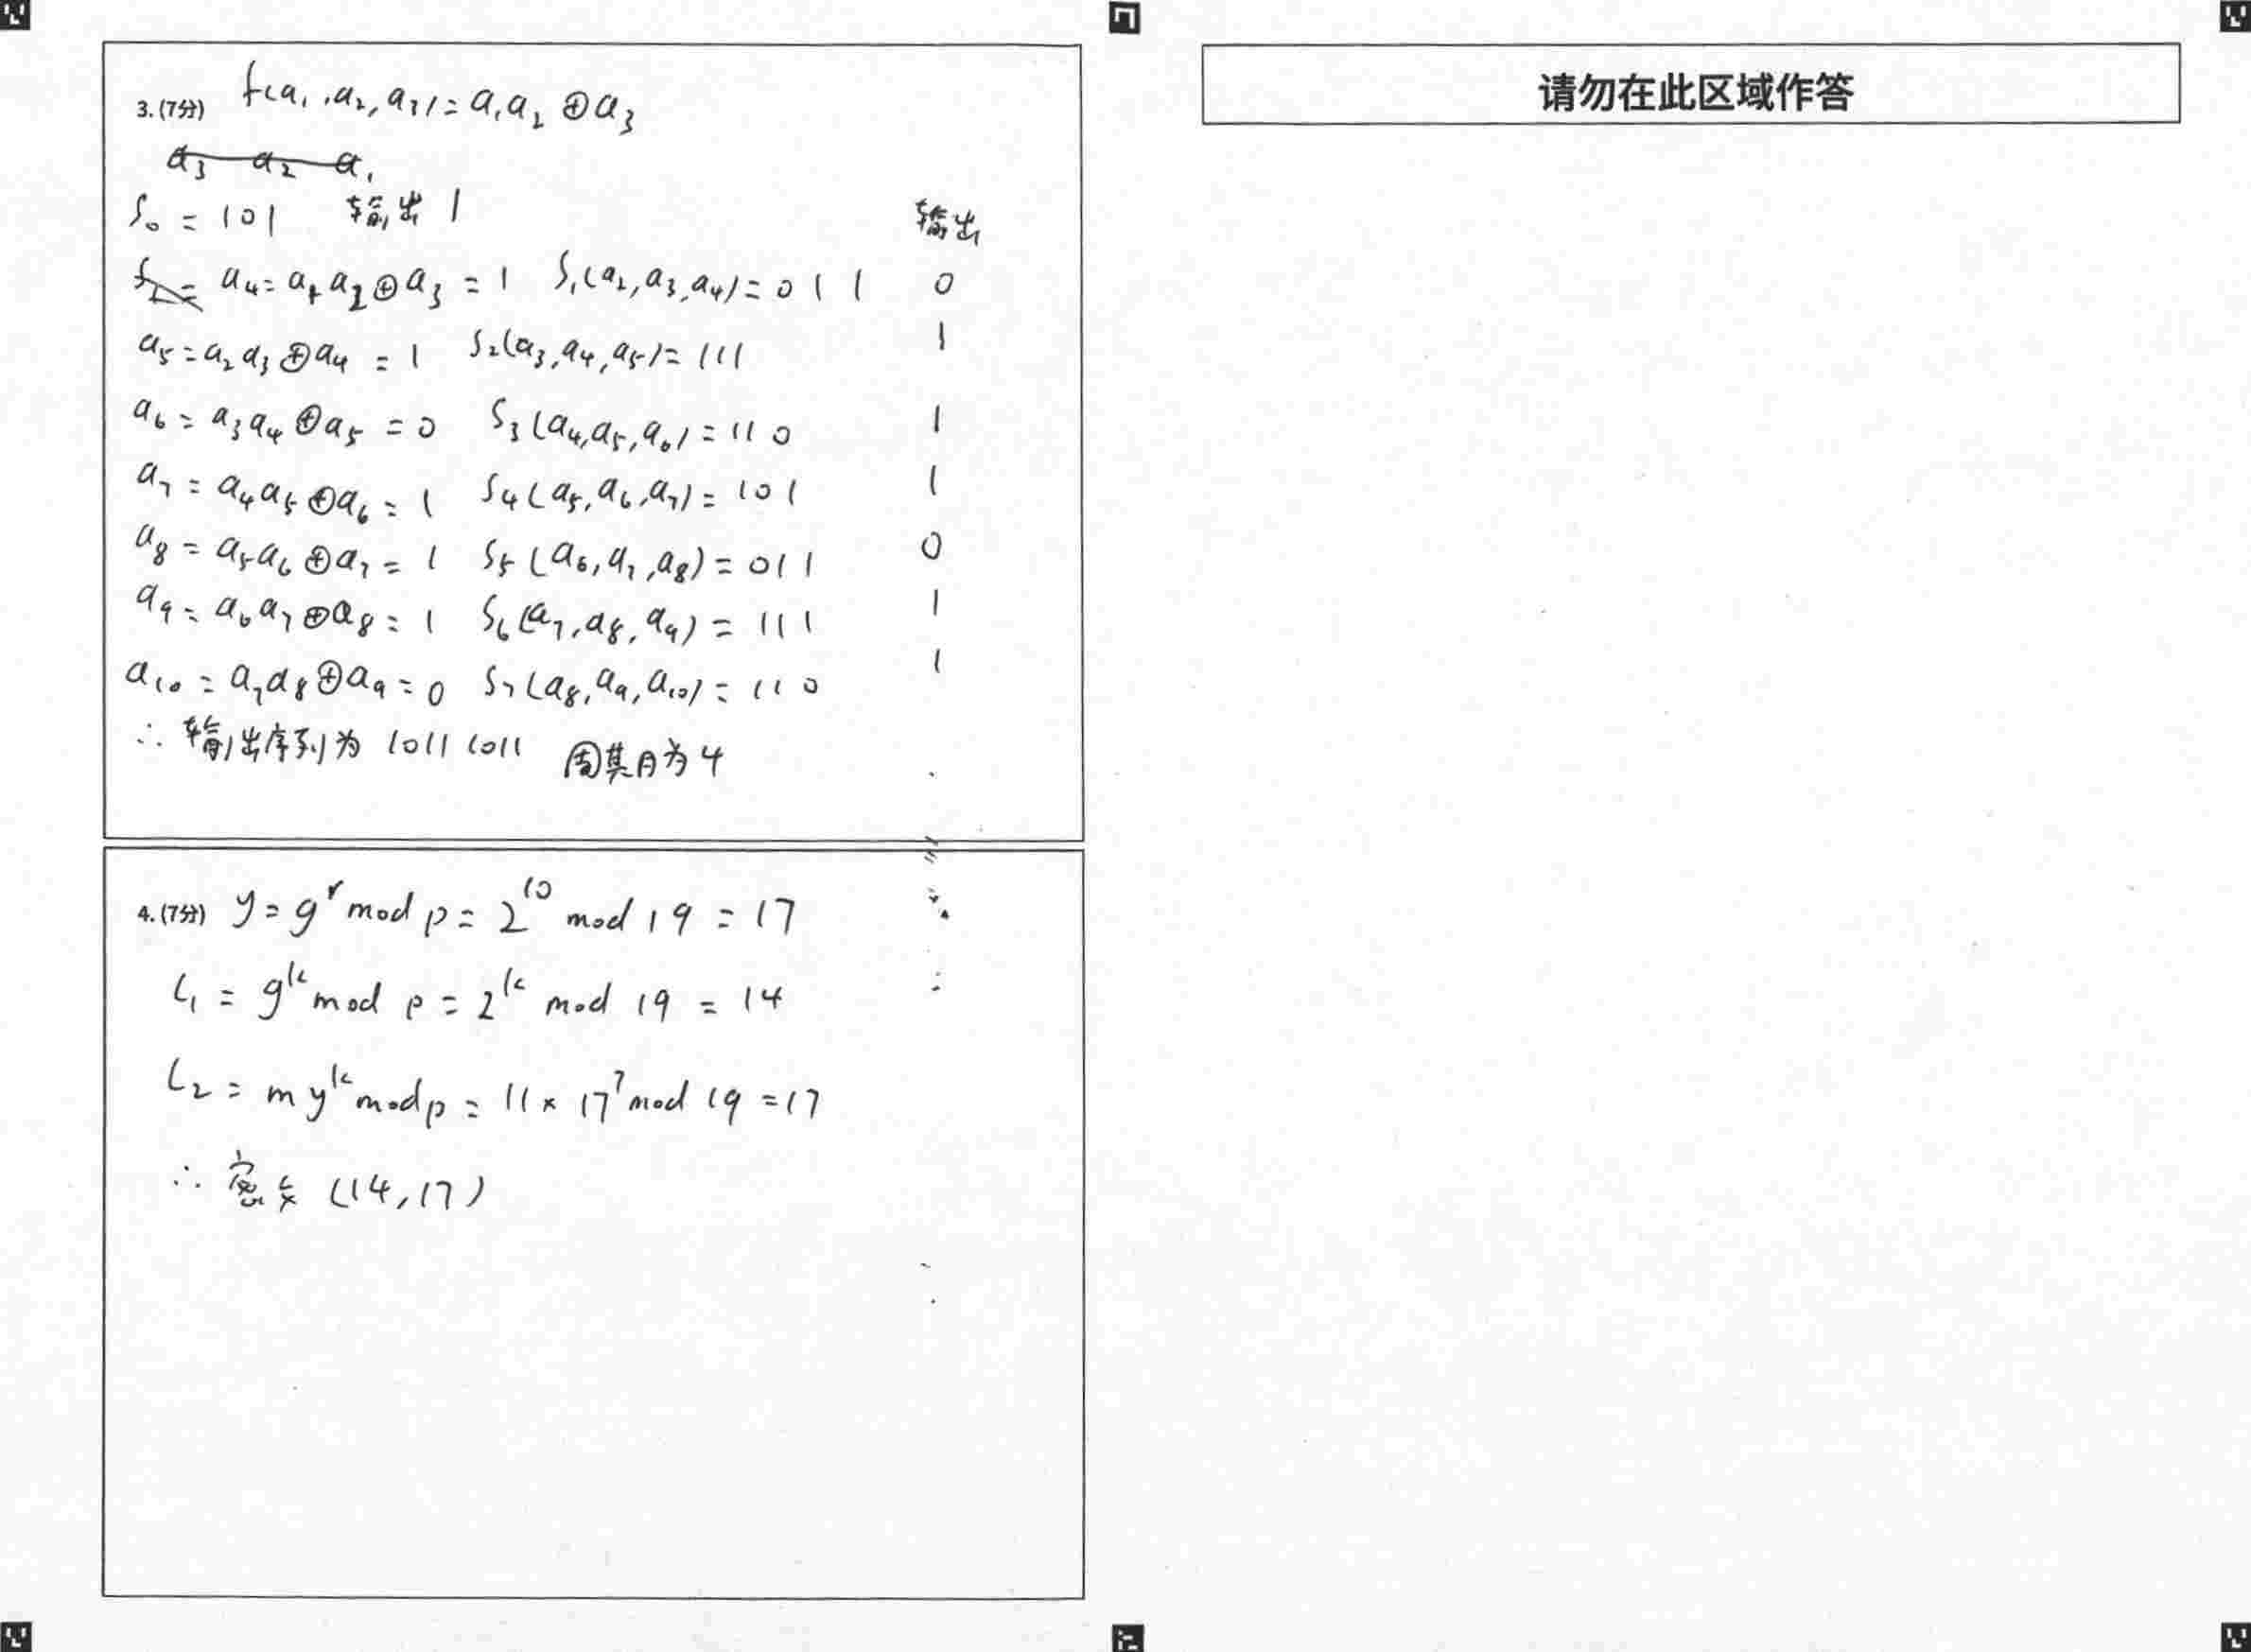 请勿在此区域作答
3. (7分) f(a₁,a₂,a₃)=a₁a₂⊕a₃
a₃ a₂ a₁
S₀ = 101 输出 1
输出
a₄=a₁a₂⊕a₃=1 S₁(a₂,a₃,a₄)=011 0
a₅=a₂a₃⊕a₄=1 S₂(a₃,a₄,a₅)=111 1
a₆=a₃a₄⊕a₅=0 S₃(a₄,a₅,a₆)=110 1
a₇=a₄a₅⊕a₆=1 S₄(a₅,a₆,a₇)=101 1
a₈=a₅a₆⊕a₇=1 S₅(a₆,a₇,a₈)=011 0
a₉=a₆a₇⊕a₈=1 S₆(a₇,a₈,a₉)=111 1
a₁₀=a₇a₈⊕a₉=0 S₇(a₈,a₉,a₁₀)=110 1
∴ 输出序列为 10111011 周期为4
4. (7分) y=gʳ mod p=2¹⁰ mod 19=17
C₁=gᵏ mod p=2ᵏ mod 19=14
C₂=myᵏ mod p=11×17⁷ mod 19=17
∴ 密文 (14,17)